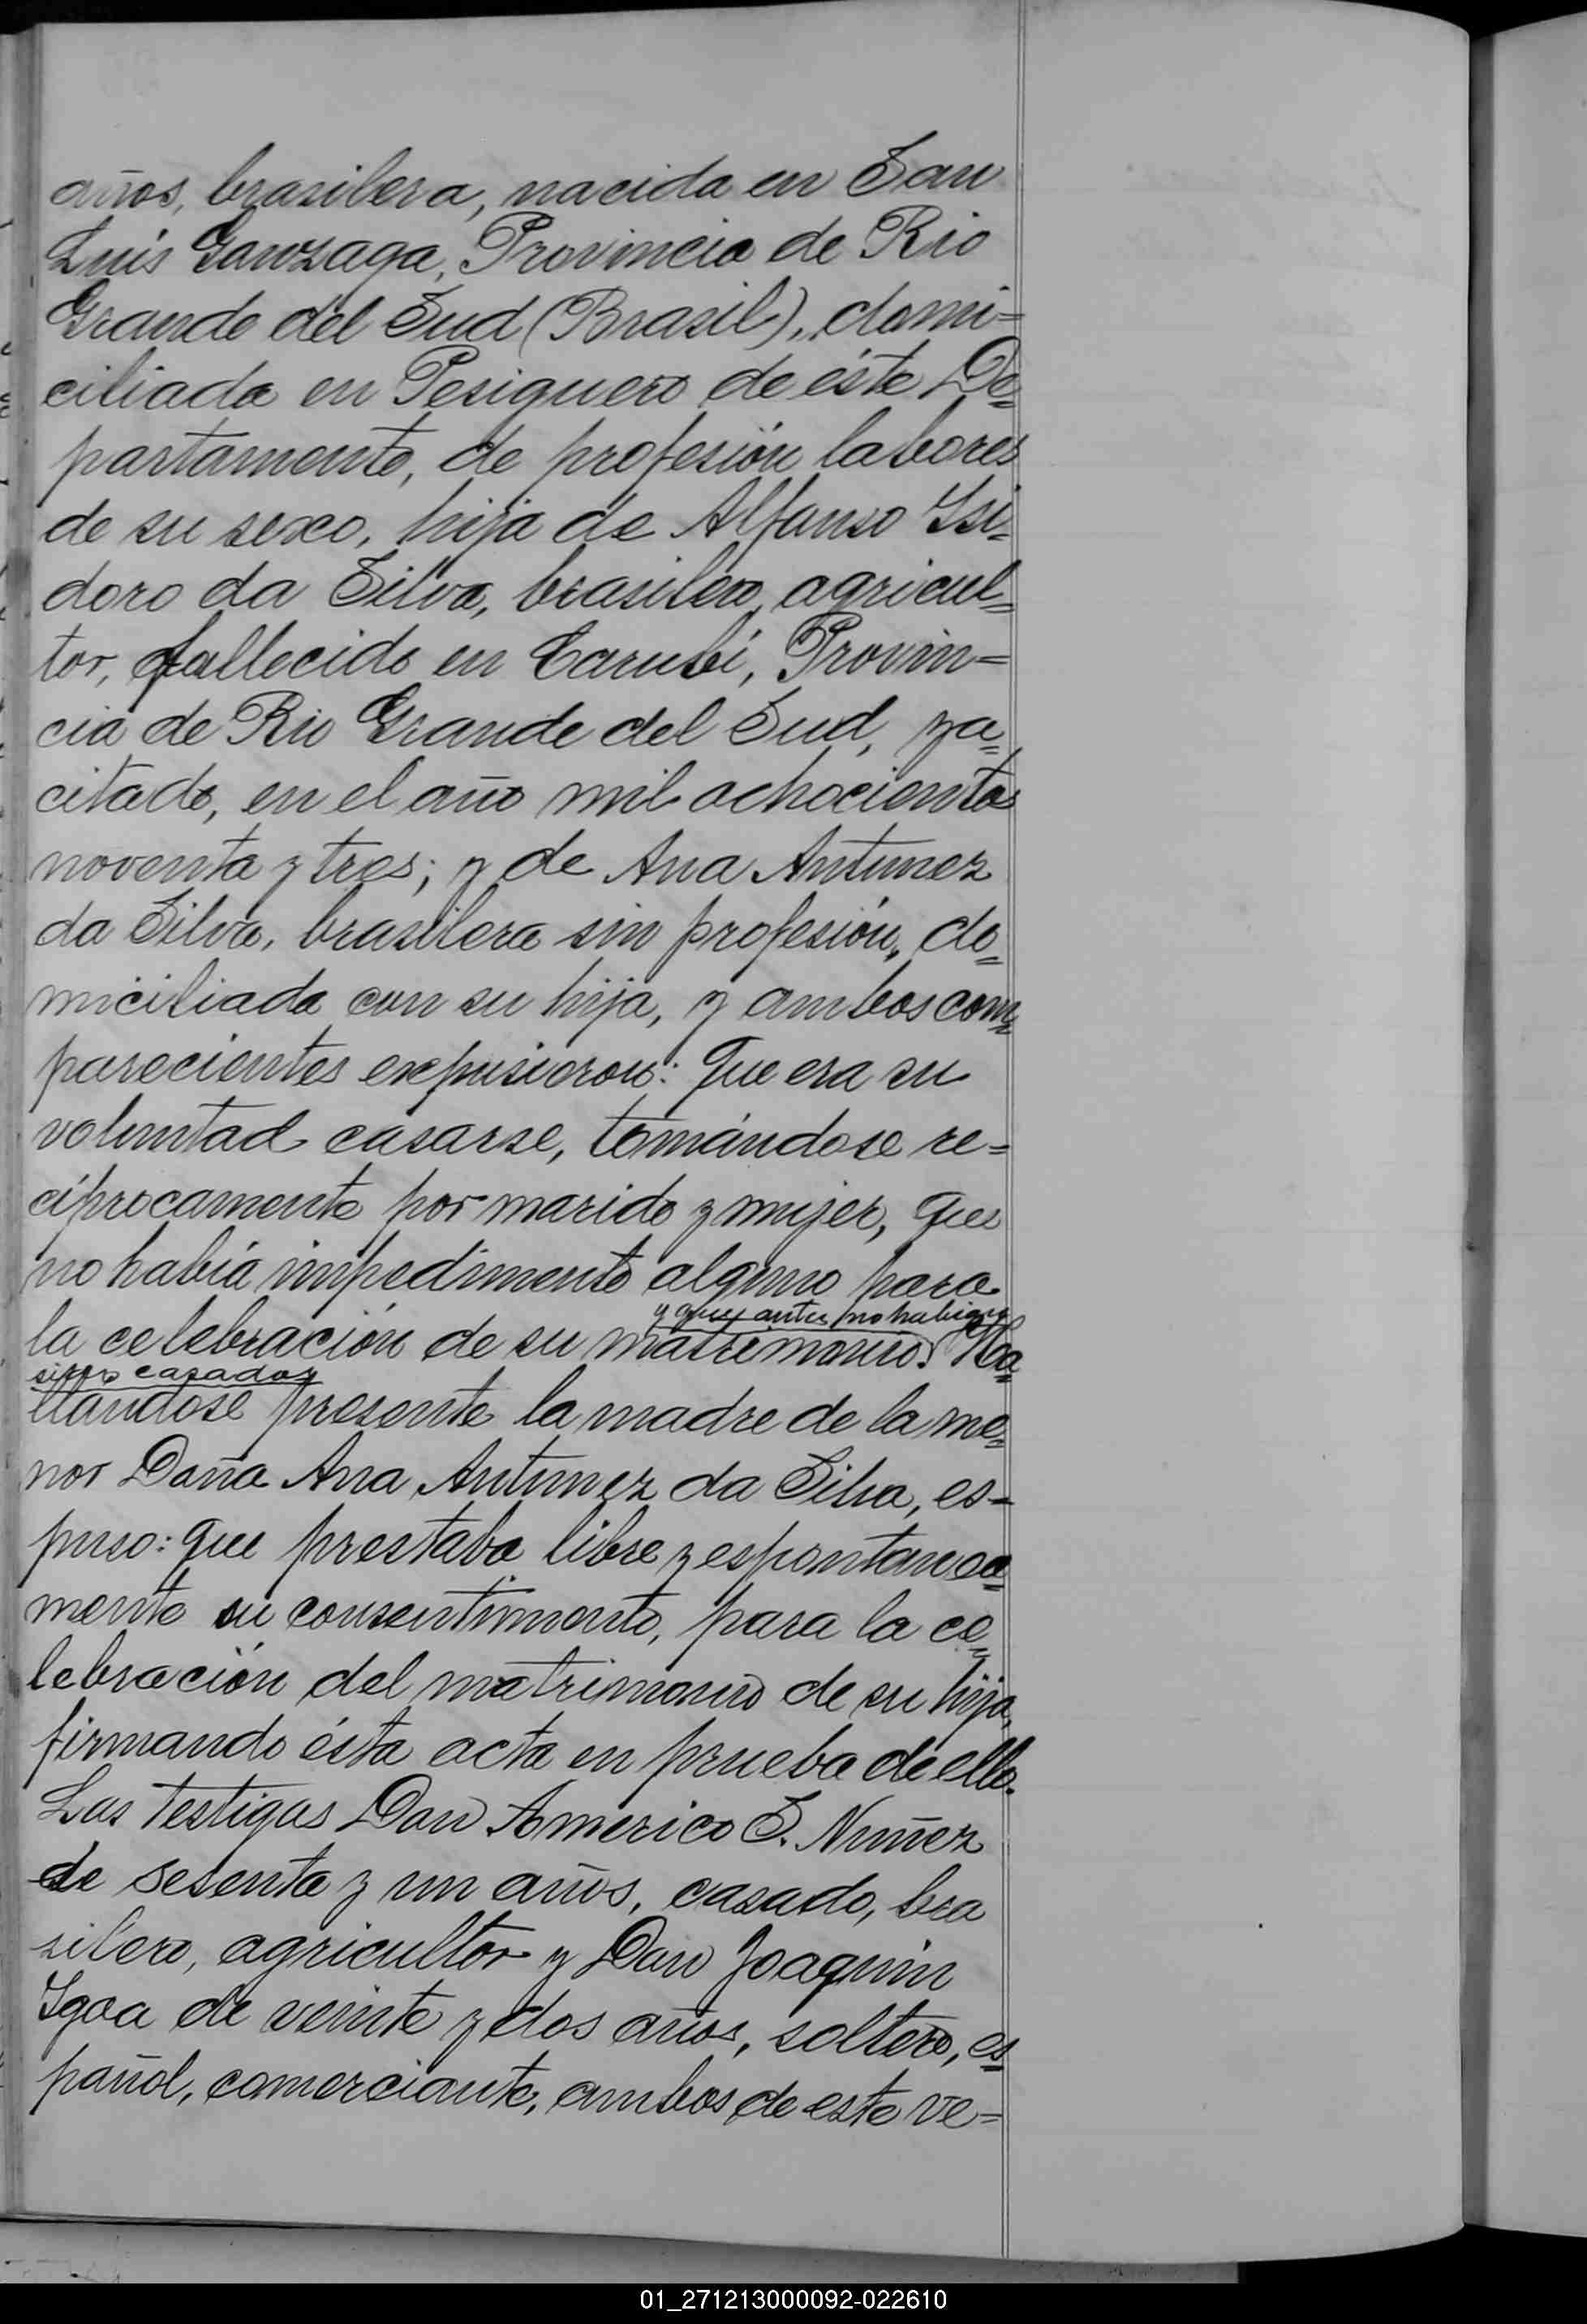 años, brasilera, nacida en San
Luis Gonzaga, Provincia de Rio
Grande del Sud (Brasil), domi=
ciliada en Pesiguero de éste De=
partamento, de profesión labores
de su sexo, hija de Alfonso Isi=
doro da Silva, brasilero, agricul=
tor, fallecido en Carubí, Provin=
cia de Rio Grande del Sud, ya=
citado, en el año mil ochocientos
noventa y tres; y de Ana Antunez
da Silva, brasilera sin profesión, do=
miciliada con su hija, y ambos com=
parecientes expusieron: Que era su
voluntad casarse, tomándose re=
ciprocamente por marido y mujer, que
no había impedimento alguno para
y que antes no habian
la celebración de su matrimonio. Ha=
sido casados
llandose presente la madre de la me=
nor Doña Ana Antunez da Silva, es=
puso: que prestaba libre y espontanea=
mente su consentimiento, para la ce=
lebración del matrimonio de su hija,
firmando ésta acta en prueba de ello.
Los testigos Don Americo S. Nuñez
de sesenta y un años, casado, bra
silero, agricultor y Don Joaquin
Igoa de veinte y dos años, soltero, es=
pañol, comerciante, ambos de este ve=
01_271213000092-022610